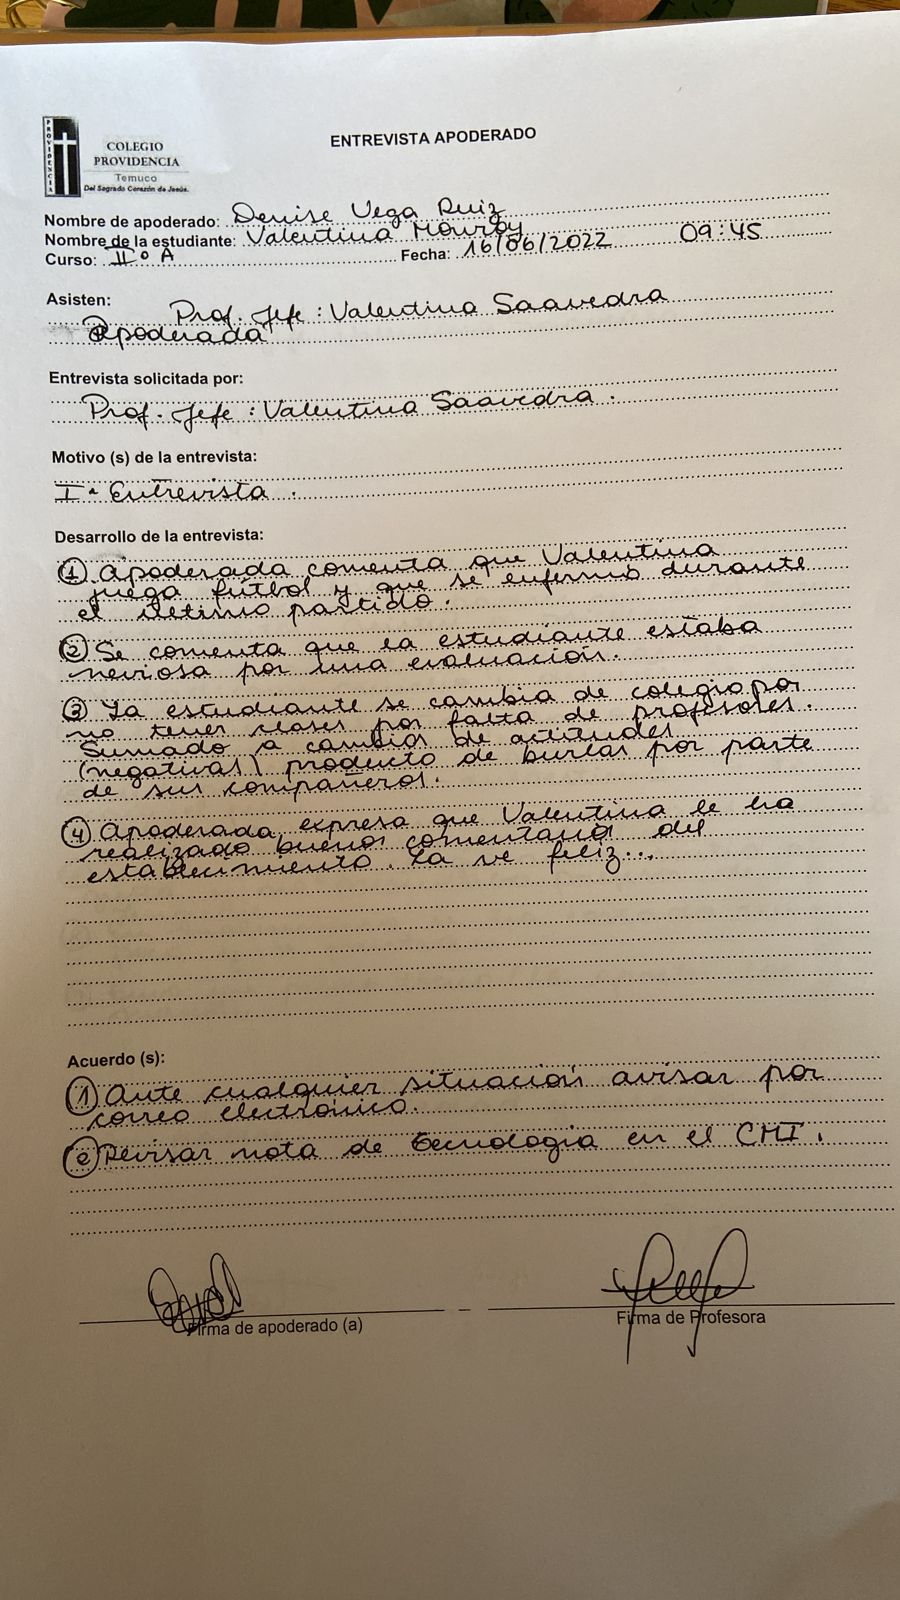 PROVIDENCIA
COLEGIO
PROVIDENCIA
Temuco
Del Sagrado Corazón de Jesús.
ENTREVISTA APODERADO
Nombre de apoderado: Denise Vega Ruiz
Nombre de la estudiante: Valentina Monroy
Curso: IIº A Fecha: 16/06/2022 09:45
Asisten:
Prof. Jefe : Valentina Saavedra
Apoderada
Entrevista solicitada por:
Prof. Jefe : Valentina Saavedra.
Motivo (s) de la entrevista:
Iª Entrevista.
Desarrollo de la entrevista:
① Apoderada comenta que Valentina
juega fútbol y que se enfermó durante
el último partido.
② Se comenta que la estudiante estaba
nerviosa por una evaluación.
③ La estudiante se cambia de colegio por
no tener clases por falta de profesores.
Sumado a cambios de actitudes
(negativas) producto de burlas por parte
de sus compañeros.
④ Apoderada expresa que Valentina le ha
realizado buenos comentarios del
establecimiento. La ve feliz...
Acuerdo (s):
① Ante cualquier situación avisar por
correo electrónico.
② Revisar nota de tecnología en el CMI.
Firma de apoderado (a)
Firma de Profesora